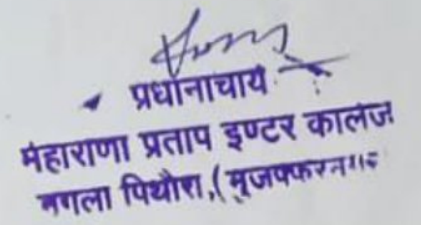 प्रधानाचार्य
महाराणा प्रताप इण्टर कालेज
नगला पिथौरा, (मुजफ्फरनगर